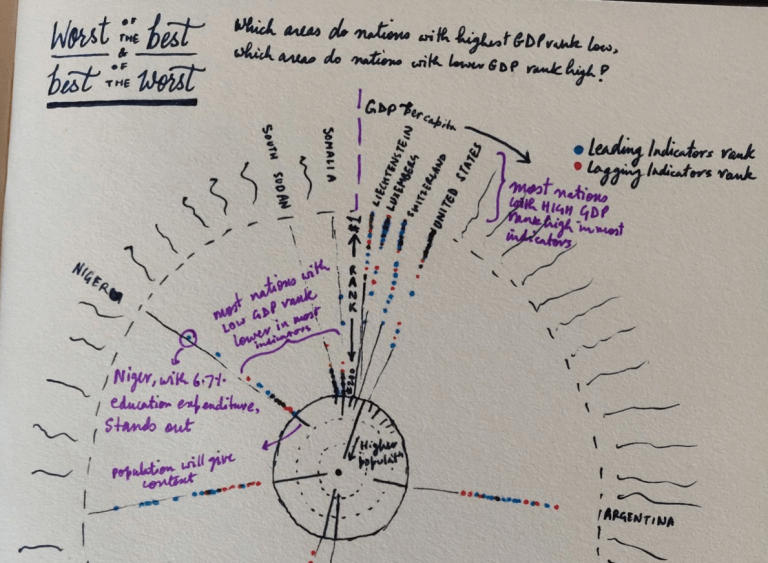 Worst OF THE best
&
best OF THE worst
Which areas do nations with highest GDP rank low,
which areas do nations with lower GDP rank high?
GDP Per capita
Leading Indicators rank
Lagging Indicators rank
SOUTH SUDAN
SOMALIA
LIECHTENSTEIN
LUXEMBERG
SWITZERLAND
UNITED STATES
most nations
with HIGH GDP
rank high in most
indicators
#1
RANK
NIGER
most nations with
LOW GDP rank
lower in most
indicators
Niger, with 6.7%
education expenditure,
Stands out
population will give
context
Higher
populatn
ARGENTINA